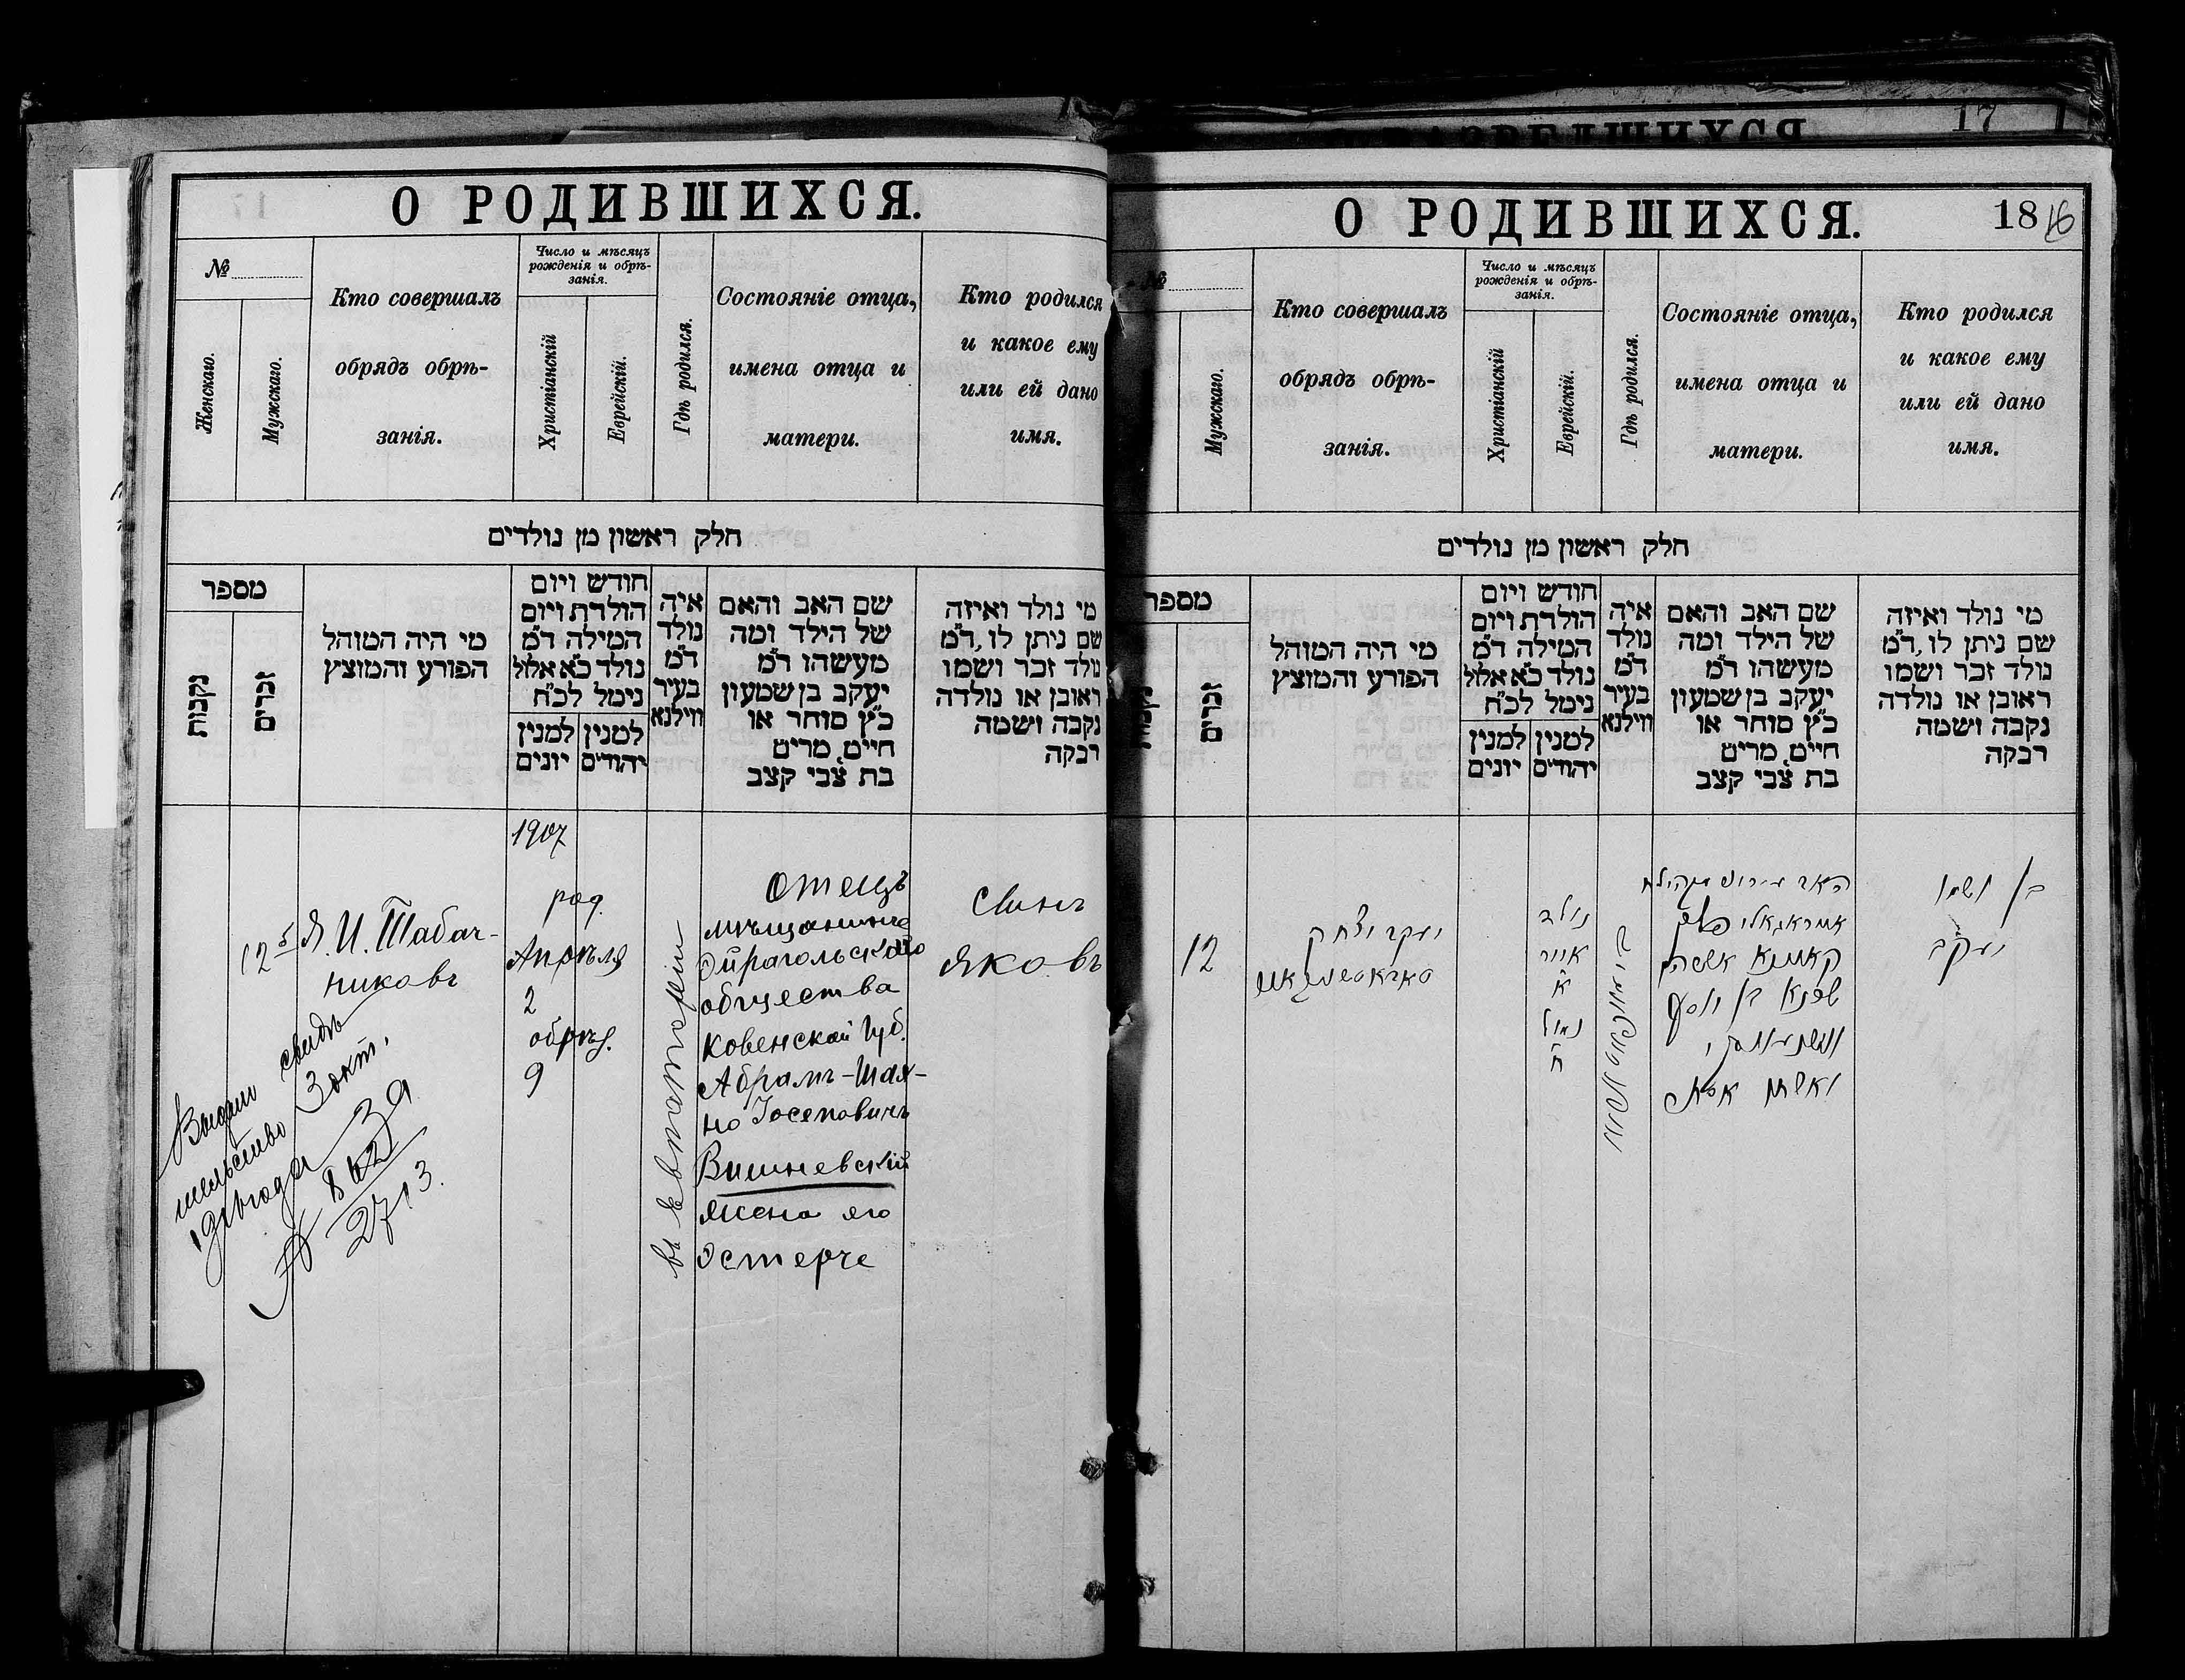 17
О РОДИВШИХСЯ.
№
Женскаго.
Мужскаго.
Кто совершалъ
обрядъ обрѣ-
занія.
Число и мѣсяцъ
рожденія и обрѣ-
занія.
Христіанскій
Еврейскій.
Гдѣ родился.
Состояніе отца,
имена отца и
матери.
Кто родился
и какое ему
или ей дано
имя.
חלק ראשון מן נולדים
מספר
נקבות
זכרים
מי היה המוהל
הפורע והמוצץ
חודש ויום
הולדת ויום
המילה ד״מ
נולד כ״א אלול
נימל לכ״ח
למנין יונים
למנין יהודים
איה
נולד
ד״מ
בעיר
ווילנא
שם האב והאם
של הילד ומה
מעשהו ד״מ
יעקב בן שמעון
כ״ץ סוחר או
חייט, מרים
בת צבי קצב
מי נולד ואיזה
שם ניתן לו, ד״מ
נולד זכר ושמו
ראובן או נולדה
נקבה ושמה
רבקה
12
Я. И. Табач-
никовъ
1907
род.
Апрѣля
2
обрѣз.
9
въ Евпаторіи
Отецъ
мѣщанинъ
Эйрагольскаго
общества
Ковенской Губ.
Абрамъ-Шах-
но Іосеповичъ
Вишневскій
жена его
Эстерче
Сынъ
Яковъ
3 окт.
39
2713.
О РОДИВШИХСЯ.
18
№
Мужскаго.
Кто совершалъ
обрядъ обрѣ-
занія.
Число и мѣсяцъ
рожденія и обрѣ-
занія.
Христіанскій
Еврейскій.
Гдѣ родился.
Состояніе отца,
имена отца и
матери.
Кто родился
и какое ему
или ей дано
имя.
חלק ראשון מן נולדים
מספר
זכרים
מי היה המוהל
הפורע והמוצץ
חודש ויום
הולדת ויום
המילה ד״מ
נולד כ״א אלול
נימל לכ״ח
למנין יונים
למנין יהודים
איה
נולד
ד״מ
בעיר
ווילנא
שם האב והאם
של הילד ומה
מעשהו ד״מ
יעקב בן שמעון
כ״ץ סוחר או
חייט, מרים
בת צבי קצב
מי נולד ואיזה
שם ניתן לו, ד״מ
נולד זכר ושמו
ראובן או נולדה
נקבה ושמה
רבקה
12
יעקב יצחק
נולד
אייר
א
נמול
ח
האב
שכנא בן יוסף
בן ושמו
יעקב